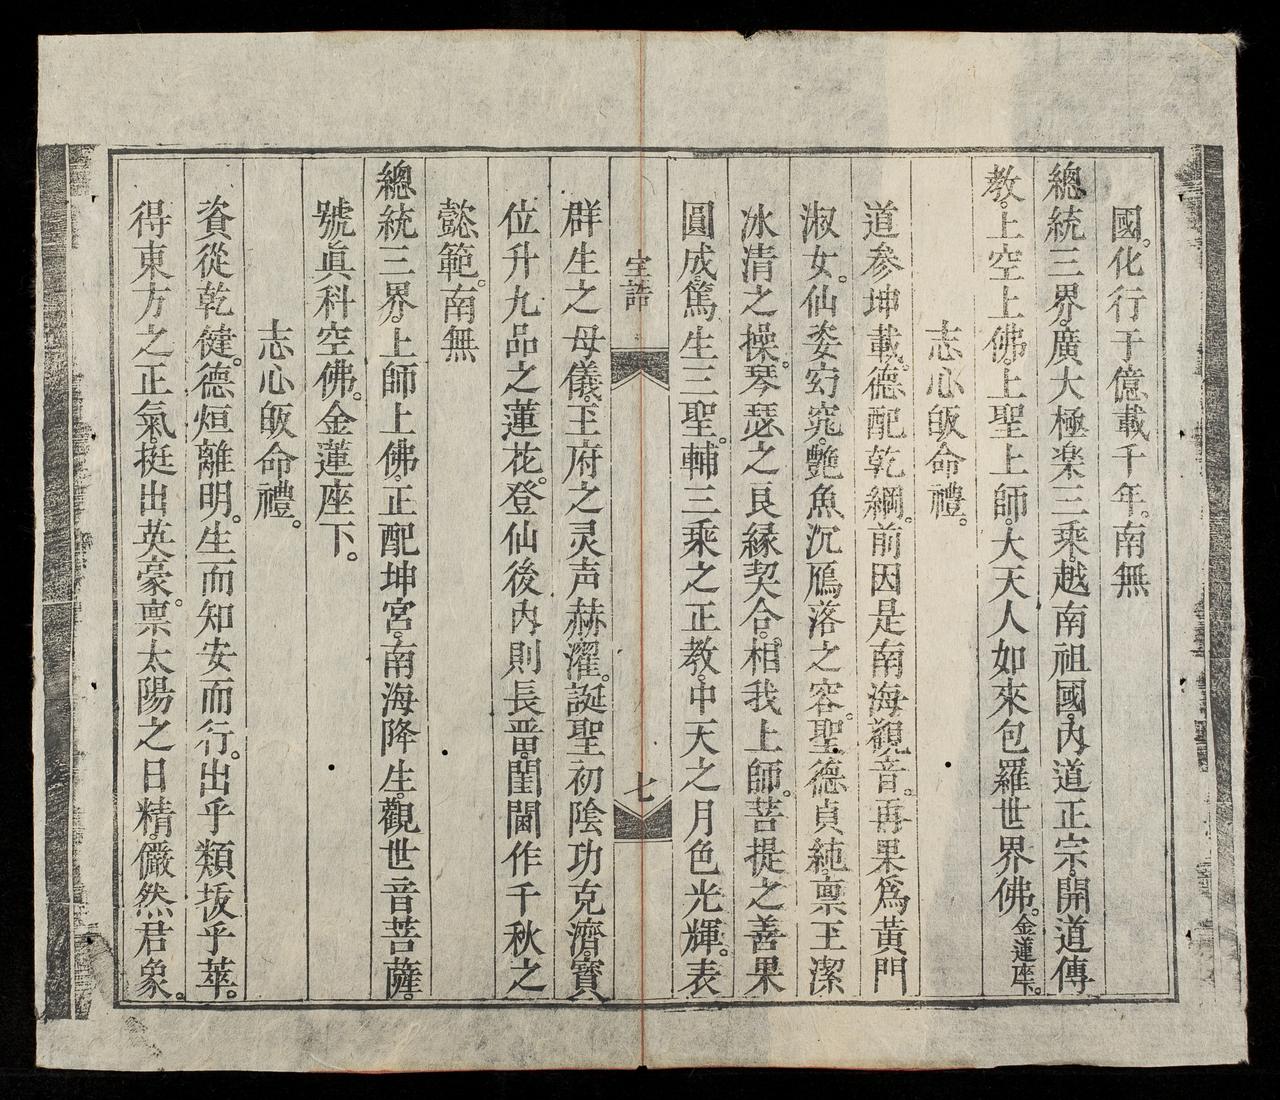 國。化行于億載千年。南無
總統三界。廣大極楽三乘。越南祖國。內道正宗。開道傳
教。上空上佛。上聖上師。大天人如來包羅世界佛。金蓮座。
志心皈命禮。
道參坤載。德配乾綱。前因是南海觀音。再果爲黃門
淑女。仙姿窈窕。艷魚沉鴈落之容。聖德貞純。禀玉潔
冰清之操。琴瑟之良緣契合。相我上師。菩提之善果
圓成。篤生三聖。輔三乘之正教。中天之月色光輝。表
空誥
七
群生之母儀。玉府之灵声赫濯。誕聖初陰功克濟。寶
位升九品之蓮花。登仙後內則長畱。閨閫作千秋之
懿範。南無
總統三界。上師上佛。正配坤宮。南海降生。觀世音菩薩。
號眞科空佛。金蓮座下。
志心皈命禮。
資從乾健。德烜離明。生而知安而行。出乎類拔乎萃。
得東方之正氣。挺出英豪。禀太陽之日精。儼然君象。